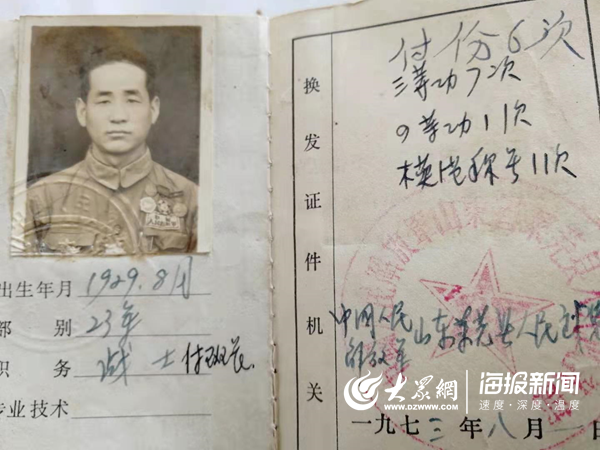 出生年月 1929.8月
部 别 23年
职 务 战士付班长
专业技术
付份6次
三等功7次
四等功11次
模范称号11次
换发证件机关
中国人民
解放军
山东莱芜县人民武装
一九七三年八月一日
大众网
www.dzwww.com
海报新闻
速度·深度·温度